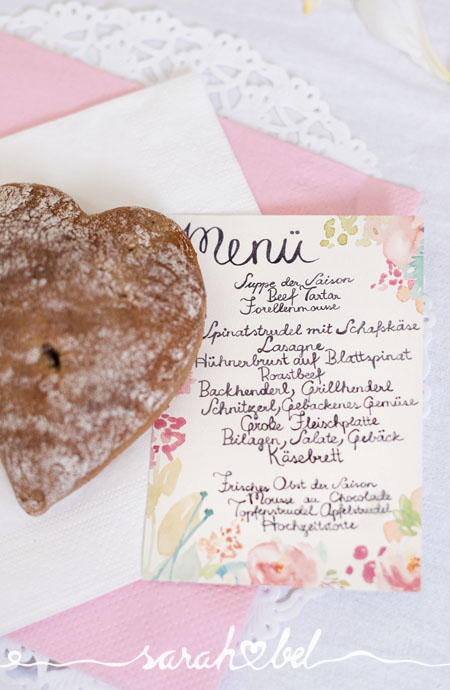 Menü
Suppe der Saison
Beef Tartar
Forellenmouse
Spinatstrudel mit Schafskäse
Lasagne
Hühnerbrust auf Blattspinat
Roastbeef
Backhenderl, Grillhenderl
Schnitzerl, Gebackenes Gemüse
Große Fleischplatte
Beilagen, Salate, Gebäck
Käsebrett
Frisches Obst der Saison
Mousse au Chocolade
Topfenstrudel Apfelstrudel
Hochzeitstorte
sarah bel